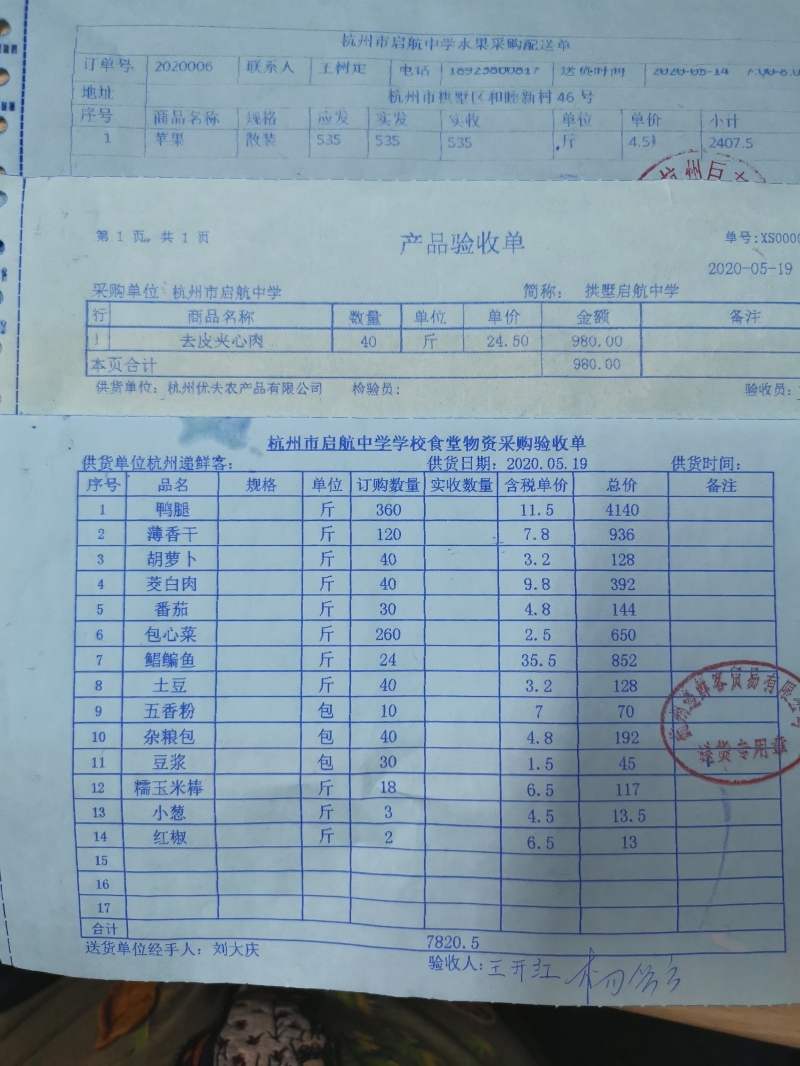 杭州市启航中学水果采购配送单
订单号 2020006 联系人 王树定 电话 18923800817 送货时间 2020-05-14
地址 杭州市拱墅区和睦新村46号
序号 商品名称 规格 应发 实发 实收 单位 单价 小计
1 苹果 散装 535 535 535 斤 4.5 2407.5
第 1 页 共 1 页 产品验收单 单号:XS0000
2020-05-19
采购单位 杭州市启航中学 简称: 拱墅启航中学
行 商品名称 数量 单位 单价 金额 备注
1 去皮夹心肉 40 斤 24.50 980.00
本页合计 980.00
供货单位: 杭州优夫农产品有限公司 检验员: 验收员:
杭州市启航中学学校食堂物资采购验收单
供货单位杭州递鲜客: 供货日期: 2020.05.19 供货时间:
序号 品名 规格 单位 订购数量 实收数量 含税单价 总价 备注
1 鸭腿 斤 360 11.5 4140
2 薄香干 斤 120 7.8 936
3 胡萝卜 斤 40 3.2 128
4 茭白肉 斤 40 9.8 392
5 番茄 斤 30 4.8 144
6 包心菜 斤 260 2.5 650
7 鲳鳊鱼 斤 24 35.5 852
8 土豆 斤 40 3.2 128
9 五香粉 包 10 7 70
10 杂粮包 包 40 4.8 192
11 豆浆 包 30 1.5 45
12 糯玉米棒 斤 18 6.5 117
13 小葱 斤 3 4.5 13.5
14 红椒 斤 2 6.5 13
15
16
17
合计 7820.5
送货单位经手人: 刘大庆 验收人: 王开江
杭州递鲜客贸易有限公司
送货专用章